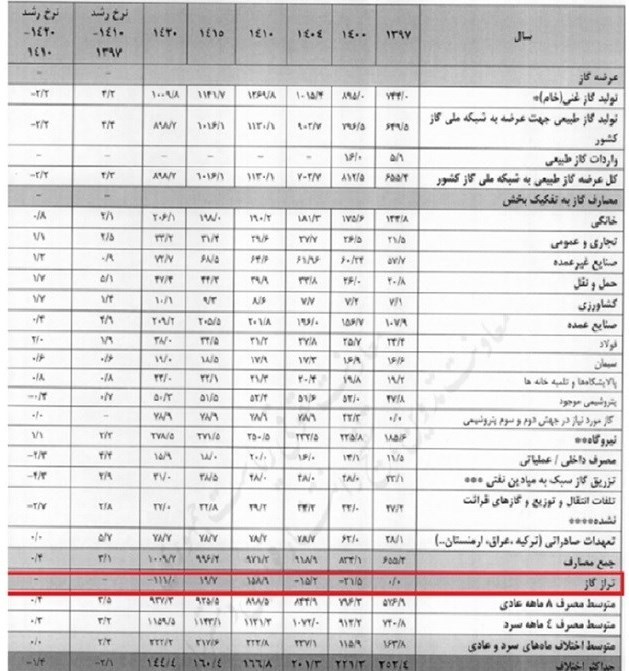 سال ۱۳۹۷ ۱۴۰۰ ۱۴۰۴ ۱۴۱۰ ۱۴۱۵ ۱۴۲۰ نرخ رشد ۱۴۱۰- ۱۳۹۷ نرخ رشد ۱۴۲۰- ۱۴۱۰
عرضه گاز – –
تولید گاز غنی(خام)* ۷۴۴/۰ ۸۹۵/۰ ۱۰۱۵/۴ ۱۲۶۹/۸ ۱۱۴۱/۷ ۱۰۰۹/۸ ۴/۲ -۲/۲
تولید گاز طبیعی جهت عرضه به شبکه ملی گاز
کشور ۶۴۹/۵ ۷۹۶/۵ ۹۰۲/۷ ۱۱۳۰/۱ ۱۰۱۶/۱ ۸۹۸/۷ ۴/۳ -۲/۲
واردات گاز طبیعی ۵/۹ ۱۶/۰ – – – – – –
کل عرضه گاز طبیعی به شبکه ملی گاز کشور ۶۵۵/۴ ۸۱۲/۵ ۱۱۳۰/۱ ۱۰۱۶/۱ ۸۹۸/۷ ۴/۳ -۲/۲
مصارف گاز به تفکیک بخش
خانگی ۱۷۵/۶ ۱۸۱/۳ ۱۹۰/۲ ۱۹۸/۰ ۲۰۶/۱ ۲/۱ ۰/۸
تجاری و عمومی ۲۱/۵ ۲۶/۵ ۲۷/۷ ۲۹/۶ ۳۱/۴ ۳۳/۲ ۲/۵ ۱/۱
صنایع غیرعمده ۵۷/۷ ۶۰/۲۴ ۶۱/۹۶ ۶۴/۶ ۶۸/۵ ۷۲/۷ ۰/۹ ۱/۲
حمل و نقل ۲۰/۸ ۲۶/۰ ۳۳/۸ ۳۹/۹ ۴۴/۳ ۴۷/۴ ۵/۱ ۱/۷
کشاورزی ۷/۱ ۷/۲ ۷/۷ ۸/۶ ۹/۳ ۱۰/۱ ۱/۴ ۱/۷
صنایع عمده ۱۰۷/۹ ۱۵۶/۷ ۱۹۶/۰ ۲۰۱/۸ ۲۰۵/۵ ۲۰۹/۲ ۴/۹ ۰/۴
فولاد ۲۴/۲ ۲۵/۷ ۲۷/۸ ۳۱/۲ ۳۴/۵ ۳۸/۰ ۱/۹ ۲/۰
سیمان ۱۶/۶ ۱۶/۹ ۱۷/۳ ۱۷/۹ ۱۸/۵ ۱۹/۰ ۰/۶ ۰/۶
پالایشگاه‌ها و تلمبه خانه ها ۱۹/۲ ۱۹/۸ ۲۰/۴ ۲۱/۴ ۲۲/۱ ۰/۸ ۰/۸
پتروشیمی موجود ۴۷/۸ ۵۲/۰ ۵۱/۶ ۵۲/۴ ۵۱/۵ ۵۰/۳ ۰/۷ -۰/۴
گاز مورد نیاز در جهش دوم و سوم پتروشیمی ۰/۰ ۴۲/۳ ۷۸/۹ ۷۸/۹ ۷۸/۹ ۷۸/۹ – ۰/۰
نیروگاه** ۱۸۵/۶ ۲۲۵/۸ ۲۳۲/۵ ۲۵۰/۵ ۲۷۱/۵ ۲۷۸/۵ ۲/۳ ۱/۱
مصرف داخلی / عملیاتی ۱۱/۵ ۱۴/۱ ۱۶/۰ ۲۰/۰ ۱۸/۰ ۱۵/۹ ۴/۴ -۲/۳
تزریق گاز سبک به میادین نفتی *** ۲۸/۰ ۴۸/۰ ۳۸/۵ ۳۱/۰ ۲/۹ -۴/۳
تلفات انتقال و توزیع و گازهای قرائت
نشده**** ۲۷/۲ ۳۲/۰ ۳۴/۲ ۳۹/۲ ۳۲/۸ ۲۷/۰ ۲/۸ -۲/۷
تعهدات صادراتی (ترکیه ،عراق، ارمنستان..) ۶۲/۰ ۷۸/۷ ۷۸/۷ ۷۸/۷ ۷۸/۷ ۵/۷ ۰/۰
جمع مصارف ۶۵۵/۴ ۸۳۴/۱ ۹۱۸/۹ ۹۷۱/۲ ۹۹۶/۴ ۱۰۰۹/۷ ۳/۱ ۰/۴
تراز گاز ۰/۰ -۲۱/۵ -۱۵/۲ ۱۵۸/۹ ۱۹/۷ -۱۱۱/۰ – –
متوسط مصرف ۸ ماهه عادی ۵۷۶/۹ ۷۹۶/۳ ۸۴۴/۹ ۸۹۸/۵ ۹۲۵/۵ ۹۳۷/۳ ۳/۵ ۰/۴
متوسط مصرف ٤ ماهه سرد ۷۴۰/۸ ۹۱۲/۲ ۱۰۷۲/۰ ۱۱۲۱/۳ ۱۱۴۳/۱ ۱۱۵۹/۵ ۳/۲ ۰/۳
متوسط اختلاف ماه‌های سرد و عادی ۱۶۳/۸ ۱۱۵/۹ ۲۲۷/۱ ۲۲۲/۸ ۲۱۷/۶ ۲۲۲/۲ ۲/۴ ۰/۰
حداکثر اختلاف ۲۵۲/۴ ۲۲۱/۳ ۲۰۱/۳ ۱۶۶/۸ ۱۶۰/۴ ۱۴۴/۴ -۲/۱ -۱/۴